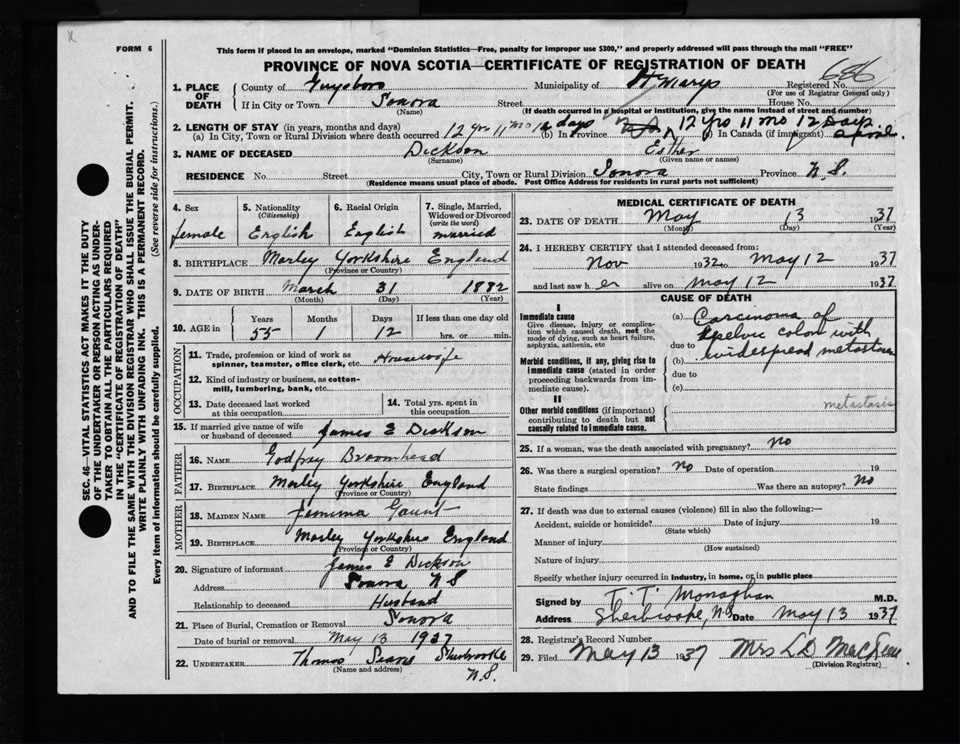 FORM 6
This form if placed in an envelope, marked "Dominion Statistics—Free, penalty for improper use $300," and properly addressed will pass through the mail "FREE"
PROVINCE OF NOVA SCOTIA—CERTIFICATE OF REGISTRATION OF DEATH
686
1. PLACE OF DEATH County of Guysboro Municipality of St Marys Registered No.
(For use of Registrar General only)
If in City or Town Sonora Street House No.
(Name) (If death occurred in a hospital or institution, give the name instead of street and number)
2. LENGTH OF STAY (in years, months and days)
(a) In City, Town or Rural Division where death occurred 12 yrs 11 mo 12 days (b) In Province 12 yrs 11 mo 12 days (c) In Canada (if immigrant)
3. NAME OF DECEASED Dickson Esther
(Surname) (Given name or names)
RESIDENCE No. Street City, Town or Rural Division Sonora Province N.S.
(Residence means usual place of abode. Post Office Address for residents in rural parts not sufficient)
4. Sex 5. Nationality (Citizenship) 6. Racial Origin 7. Single, Married, Widowed or Divorced (write the word)
female English English married
8. BIRTHPLACE Morley Yorkshire England
(Province or Country)
9. DATE OF BIRTH March 31 1882
(Month) (Day) (Year)
10. AGE in Years Months Days If less than one day old
55 1 12 hrs. or min.
OCCUPATION
11. Trade, profession or kind of work as spinner, teamster, office clerk, etc. Housewife
12. Kind of industry or business, as cotton-mill, lumbering, bank, etc.
13. Date deceased last worked at this occupation 14. Total yrs. spent in this occupation
15. If married give name of wife or husband of deceased James E Dickson
FATHER
16. NAME Godfray Broomhead
17. BIRTHPLACE Morley Yorkshire England
(Province or Country)
MOTHER
18. MAIDEN NAME Jemima Gaunt
19. BIRTHPLACE Morley Yorkshire England
(Province or Country)
20. Signature of informant James E Dickson
Address Sonora N S
Relationship to deceased Husband
21. Place of Burial, Cremation or Removal Sonora
Date of burial or removal May 13 1937
22. UNDERTAKER Thomas Sears Sherbrooke
(Name and address) N.S.
MEDICAL CERTIFICATE OF DEATH
23. DATE OF DEATH May 13 1937
(Month) (Day) (Year)
24. I HEREBY CERTIFY that I attended deceased from:
Nov 1932 to May 12 1937
and last saw her alive on May 12 1937
CAUSE OF DEATH
I
Immediate cause
Give disease, injury or complication which caused death, not the mode of dying, such as heart failure, asphyxia, asthenia, etc
Morbid conditions, if any, giving rise to immediate cause (stated in order proceeding backwards from immediate cause).
II
Other morbid conditions (if important) contributing to death but not causally related to immediate cause.
(a) Carcinoma of
pelvic colon with
due to
(b) widespread metastases
due to
(c)
metastasis
25. If a woman, was the death associated with pregnancy? no
26. Was there a surgical operation? No Date of operation 19
State findings Was there an autopsy? No
27. If death was due to external causes (violence) fill in also the following:—
Accident, suicide or homicide? Date of injury 19
(State which)
Manner of injury
(How sustained)
Nature of injury
Specify whether injury occurred in industry, in home, or in public place
Signed by T. T. Monaghan M.D.
Address Sherbrooke, N.S Date May 13 1937
28. Registrar's Record Number
29. Filed May 13 1937 Mrs L D
(Division Registrar)
SEC. 46—VITAL STATISTICS ACT MAKES IT THE DUTY
OF THE UNDERTAKER OR PERSON ACTING AS UNDER-
TAKER TO OBTAIN ALL THE PARTICULARS REQUIRED
IN THE "CERTIFICATE OF REGISTRATION OF DEATH"
AND TO FILE THE SAME WITH THE DIVISION REGISTRAR WHO SHALL ISSUE THE BURIAL PERMIT.
WRITE PLAINLY WITH UNFADING INK. THIS IS A PERMANENT RECORD.
Every item of information should be carefully supplied. (See reverse side for instructions.)